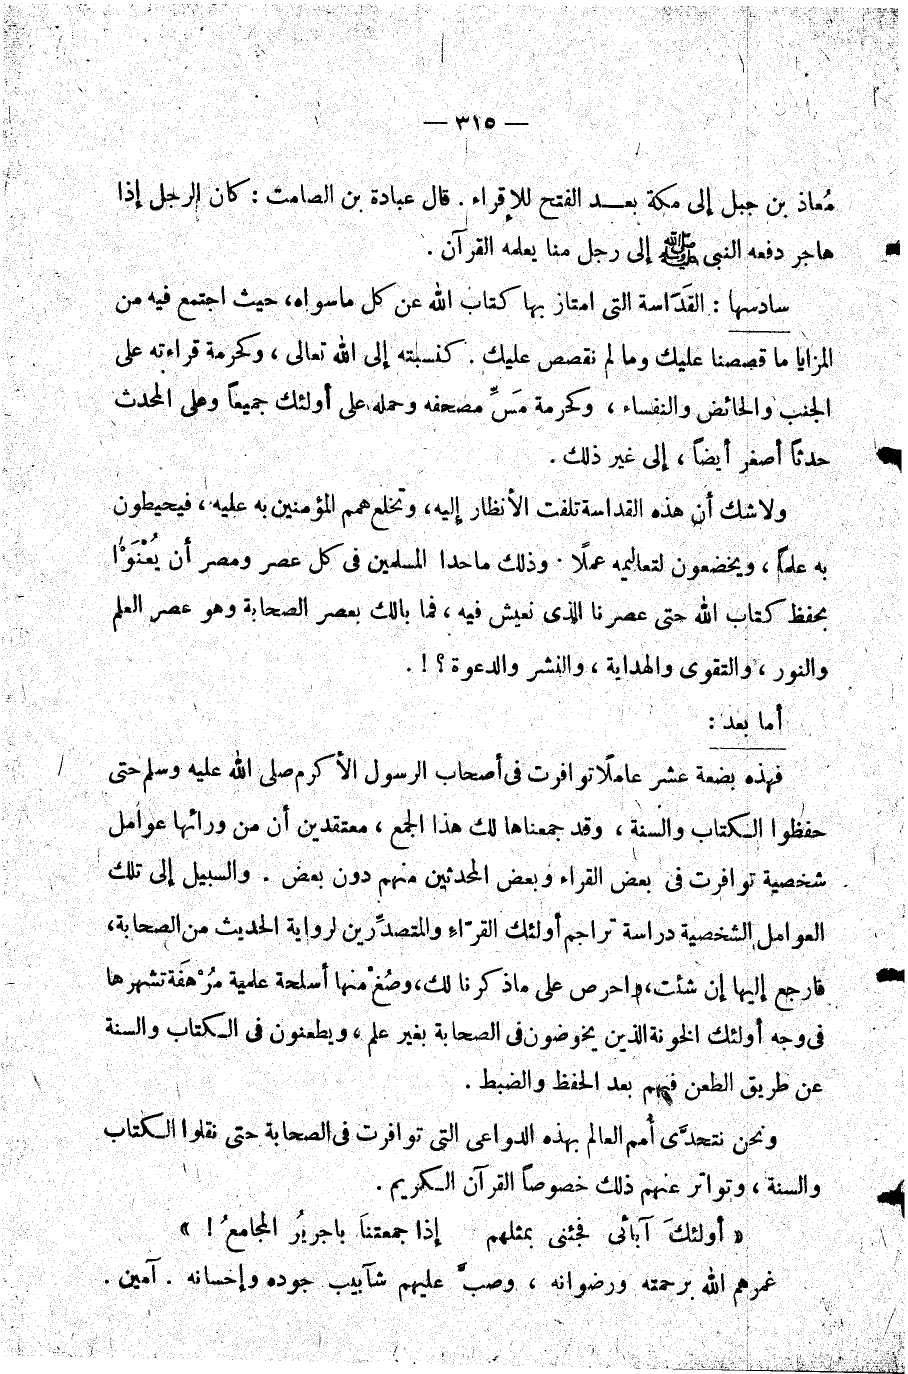 — ٣١٥ —
مُعاذ بن جبل إلى مكة بعـــد الفتح للإقراء . قال عبادة بن الصامت : كان الرجل إذا
هاجر دفعه النبى ﷺ إلى رجل منا يعلمه القرآن .
سادسها : القَدَاسة التى امتاز بها كتاب الله عن كل ماسواه، حيث اجتمع فيه من
المزايا ما قصصنا عليك وما لم نقصص عليك . كنسبته إلى الله تعالى ، وكحرمة قراءته على
الجنب والحائض والنفساء ، وكحرمة مَسِّ مصحفه وحمله على أولئك جميعاً وعلى المحدث
حدثاً أصغر أيضاً ، إلى غير ذلك .
ولاشك أن هذه القداسة تلفت الأنظار إليه، وتخلع همم المؤمنين به عليه ، فيحيطون
به علماً ، ويخضعون لتعاليمه عملًا . وذلك ماحدا المسلمين فى كل عصر ومصر أن يُعْنَوْا
بحفظ كتاب الله حتى عصرنا الذى نعيش فيه ، فما بالك بعصر الصحابة وهو عصر العلم
والنور ، والتقوى والهداية ، والنشر والدعوة ؟ ! .
أما بعد :
فهذه بضعة عشر عاملًا توافرت فى أصحاب الرسول الأكرم صلى الله عليه وسلم حتى
حفظوا الكتاب والسنة ، وقد جمعناها لك هذا الجمع ، معتقدين أن من ورائها عوامل
شخصية توافرت فى بعض القراء وبعض المحدثين منهم دون بعض . والسبيل إلى تلك
العوامل الشخصية دراسة تراجم أولئك القرّاء والمتصدِّرين لرواية الحديث من الصحابة،
فارجع إليها إن شئت، واحرص على ماذكرنا لك، وصُغْ منها أسلحة علمية مُرْهَفَة تشهرها
فى وجه أولئك الخونة الذين يخوضون فى الصحابة بغير علم ، ويطعنون فى الكتاب والسنة
عن طريق الطعن فيهم بعد الحفظ والضبط .
ونحن نتحدَّى أُمم العالم بهذه الدواعى التى توافرت فى الصحابة حتى نقلوا الكتاب
والسنة ، وتواتر عنهم ذلك خصوصاً القرآن الكريم .
« أولئكَ آبائى فجئنى بمثلهم إذا جمعتنَا ياجريرُ المجامعُ ! »
غمرهم الله برحمته ورضوانه ، وصبَّ عليهم شآبيب جوده وإحسانه . آمين .